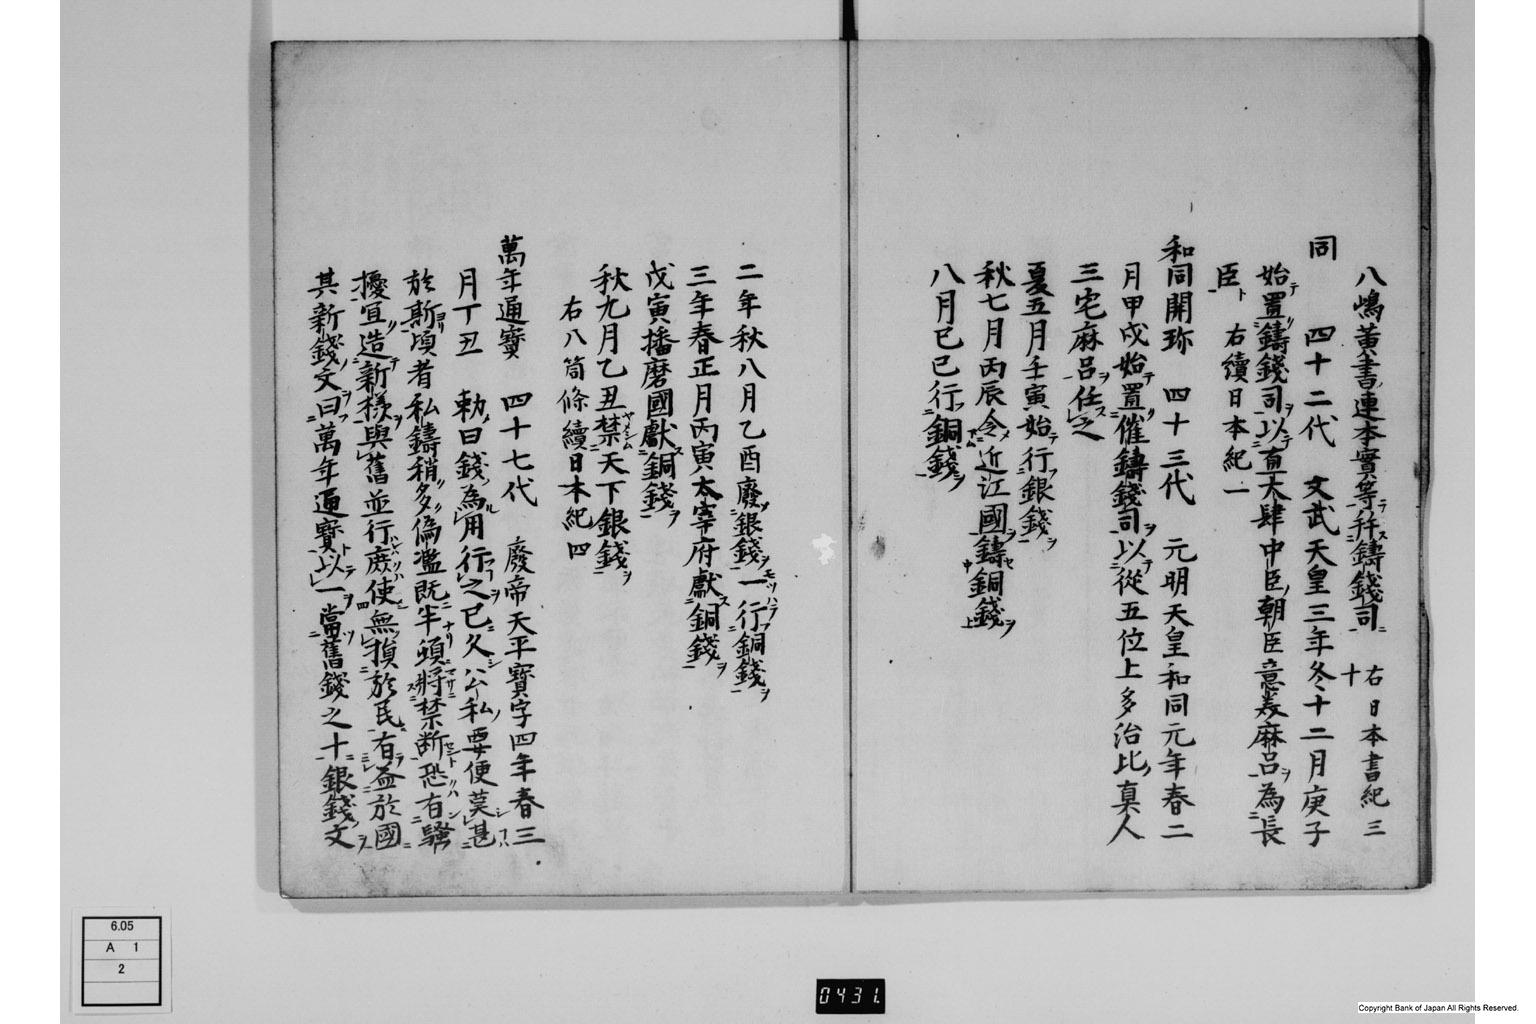 八嶋黄書連本實等拝鑄錢司 右日本書紀三十
同 四十二代 文武天皇三年冬十二月庚子
始置鑄錢司以直大肆中臣朝臣意美麻呂為長
臣 右續日本紀一
和同開珎 四十三代 元明天皇和同元年春二
月甲戌始置催鑄錢司以從五位上多治比真人
三宅麻呂任之
夏五月壬寅始行銀錢
秋七月丙辰令近江國鑄銅錢
八月己巳行銅錢
二年秋八月乙酉廢銀錢一行銅錢
三年春正月丙寅太宰府獻銅錢
戊寅播磨國獻銅錢
秋九月乙丑禁天下銀錢
右八箇條續日本紀四
萬年通寳 四十七代 廢帝天平寳字四年春三
月丁丑 勅曰錢為用行之已久公私要便莫甚
於斯頃者私鑄稍多偽濫既半頓將禁断恐有騷
擾宜造新様與舊並行庶使無損於民有益於國
其新錢文曰萬年通寳以一當舊錢之十銀錢文
6.05
A 1
2
0431.
Copyright Bank of Japan All Rights Reserved.